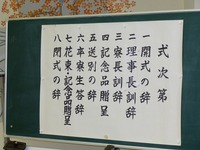 式次第
一開式の辞
二理事長訓辞
三寮長訓辞
四記念品贈呈
五送別の辞
六卒寮生答辞
七花束・記念品贈呈
八閉式の辞